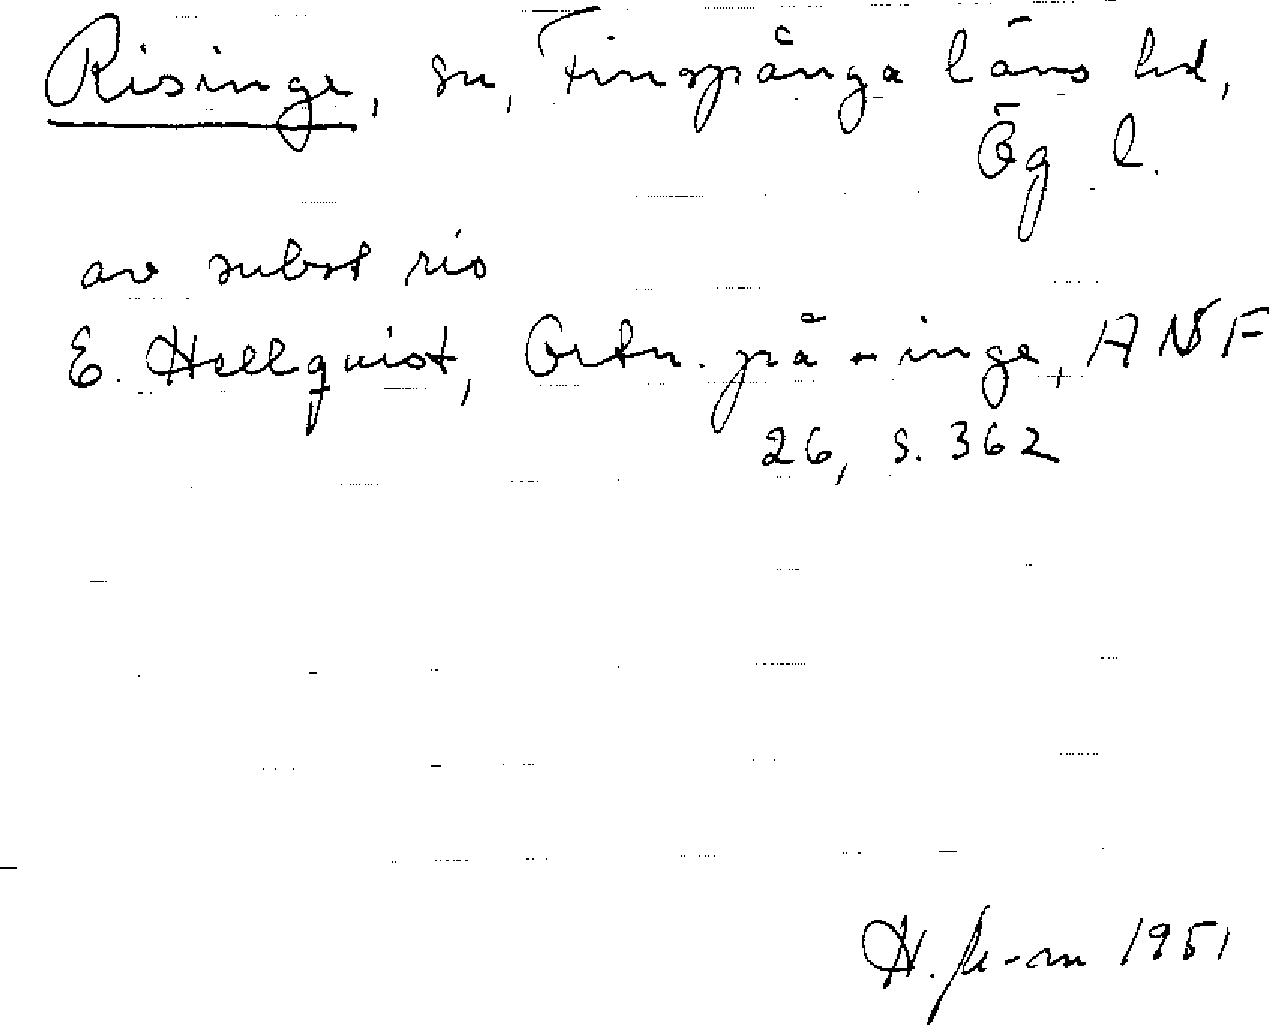 Risinge, sn, Finspånga läns hd,
Ög l.
av subst ris
E. Hellquist, Ortn. på -inge, ANF
26, s. 362
H. 1951